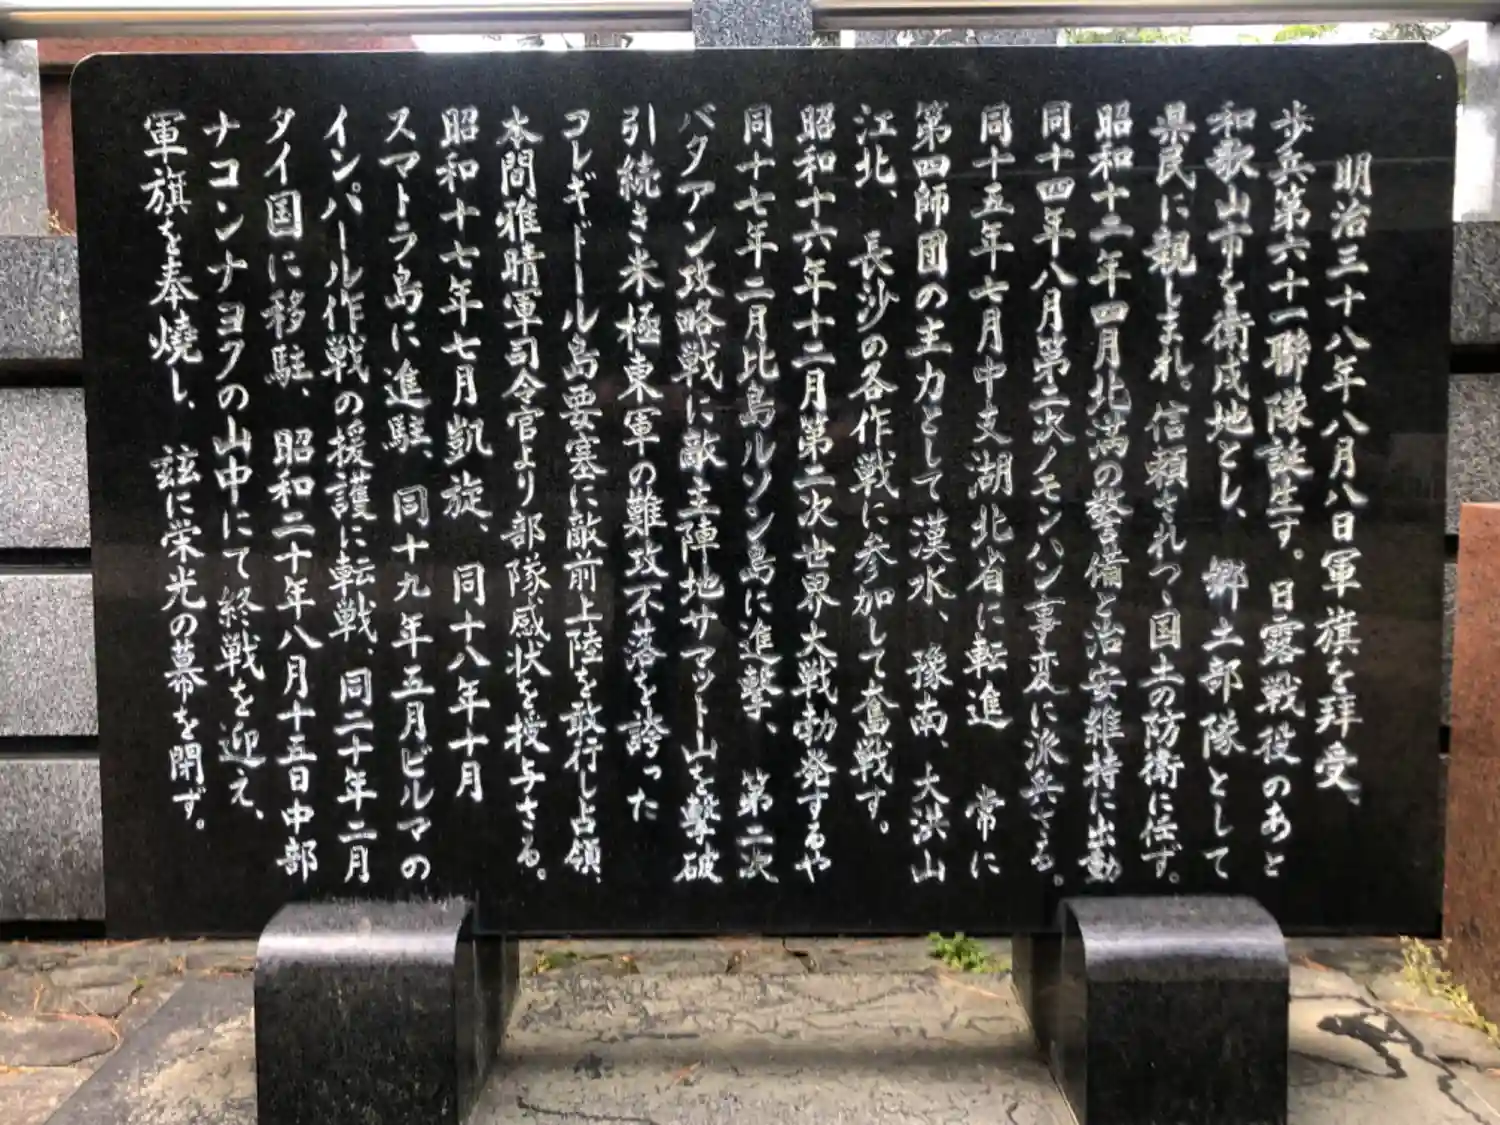 明治三十八年八月八日軍旗を拝受、
歩兵第六十一聯隊誕生す。日露戦役のあと
和歌山市を衛戍地とし、郷土部隊として
県民に親しまれ。信頼されつゝ国土の防衛に任ず。
昭和十二年四月北満の警備と治安維持に出動
同十四年八月第二次ノモンハン事変に派兵さる。
同十五年七月中支湖北省に転進　常に
第四師団の主力として漢水、豫南、大洪山
江北、長沙の各作戦に参加して奮戦す。
昭和十六年十二月第二次世界大戦勃発するや
同十七年二月比島ルソン島に進撃、第二次
バタアン攻略戦に敵主陣地サマット山を撃破
引続き米極東軍の難攻不落を誇った
コレギドール島要塞に敵前上陸を敢行し占領、
本間雅晴軍司令官より部隊感状を授与さる。
昭和十七年七月凱旋、同十八年十月
スマトラ島に進駐、同十九年五月ビルマの
インパール作戦の援護に転戦、同二十年二月
タイ国に移駐、昭和二十年八月十五日中部
ナコンナヨクの山中にて終戦を迎え、
軍旗を奉燒し、玆に栄光の幕を閉ず。